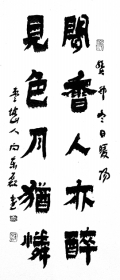 癸卯冬日暖陽
聞香人亦醉
見色月猶憐